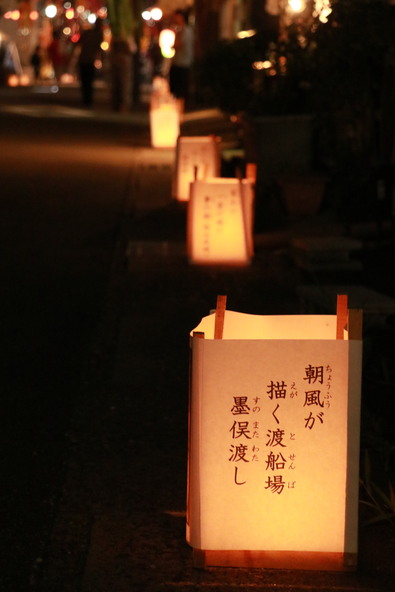 朝風が
描く渡船場
墨俣渡し
ちょうふう
えが とせんば
すのまたわた